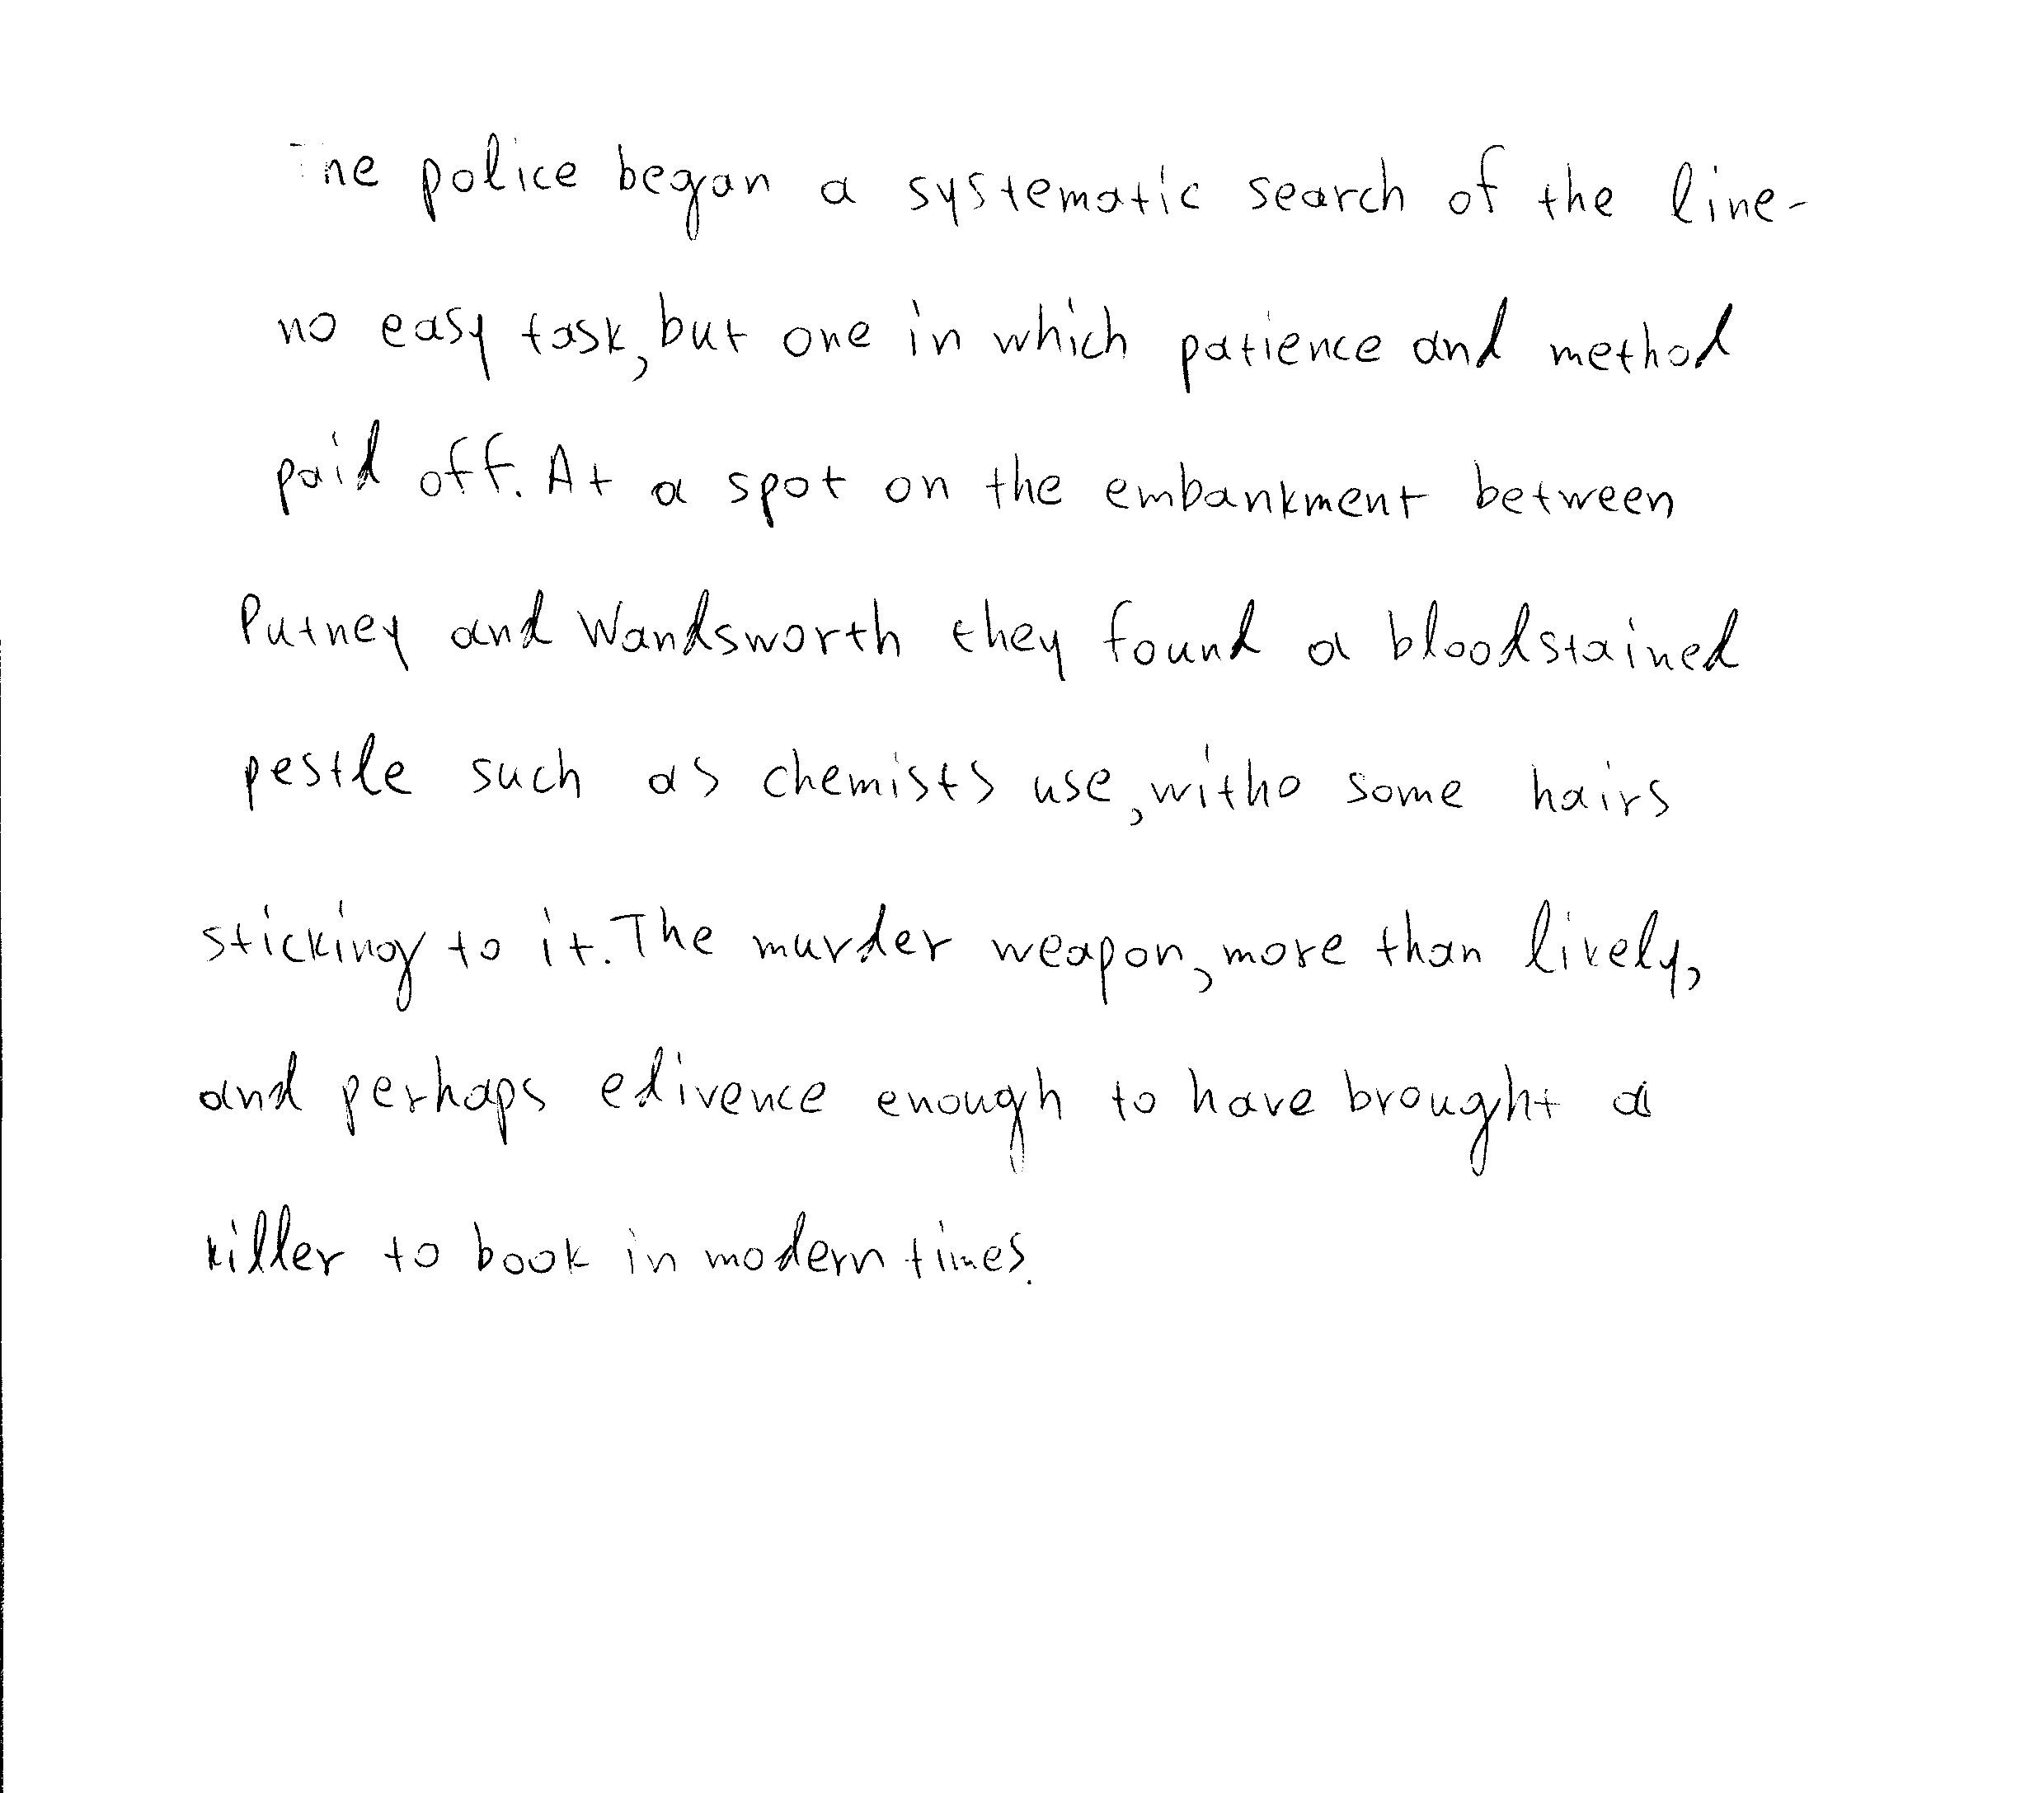 The police began a systematic search of the line-
no easy task, but one in which patience and method
paid off. At a spot on the embankment between
Putney and Wandsworth they found a bloodstained
pestle such as chemists use, witho some hairs
sticking to it. The murder weapon, more than lively,
and perhaps edivence enough to have brought a
killer to book in modern times.